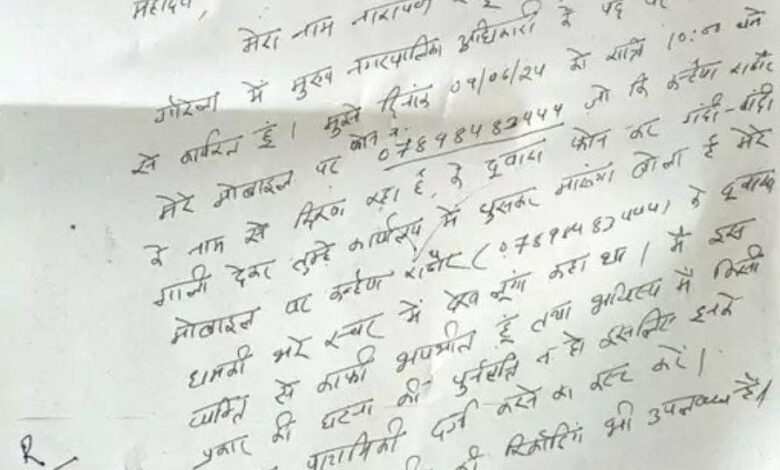 महोदय,
मेरा नाम नारायण
गौरेला में मुख्य नगरपालिका अधिकारी के पद पर
से कार्यरत हूं। मुझे दिनांक 09/06/24 को रात्रि 10:00 बजे
मेरे मोबाइल पर फोन नं. 07898483444 जो कि कन्हैया राठौर
के नाम से दिख रहा है, के द्वारा फोन कर गंदी-गंदी
गाली देकर तुम्हे कार्यालय में घुसकर मारूंगा बोला है मेरे
मोबाइल पर कन्हैया राठौर (07898483444) के द्वारा
धमकी भरे स्वर में देख लूंगा कहा था। मैं इस
व्यक्ति से काफी भयभीत हूं तथा भविष्य में किसी
प्रकार की घटना की पुर्नवृत्ति न हो इसलिए इनके
प्राथमिकी दर्ज करने का कष्ट करें।
की रिकॉर्डिंग भी उपलब्ध है।